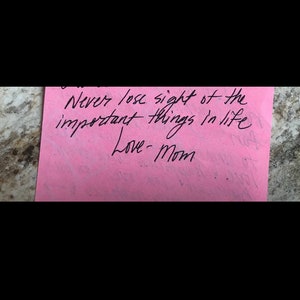 Never lose sight of the
important things in life
Love- Mom